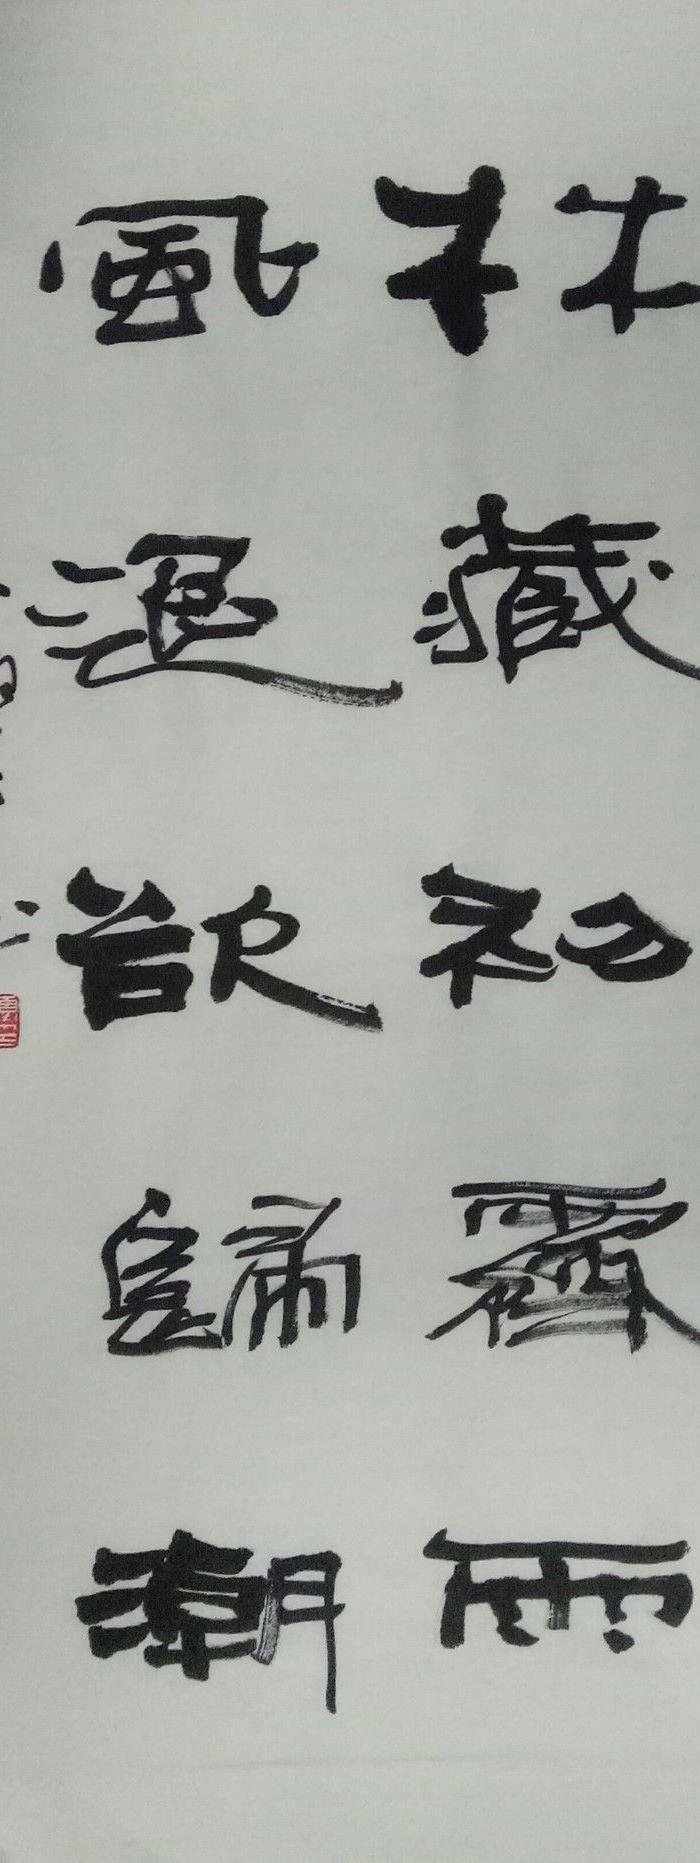 林藏初霽雨
風退欲歸潮